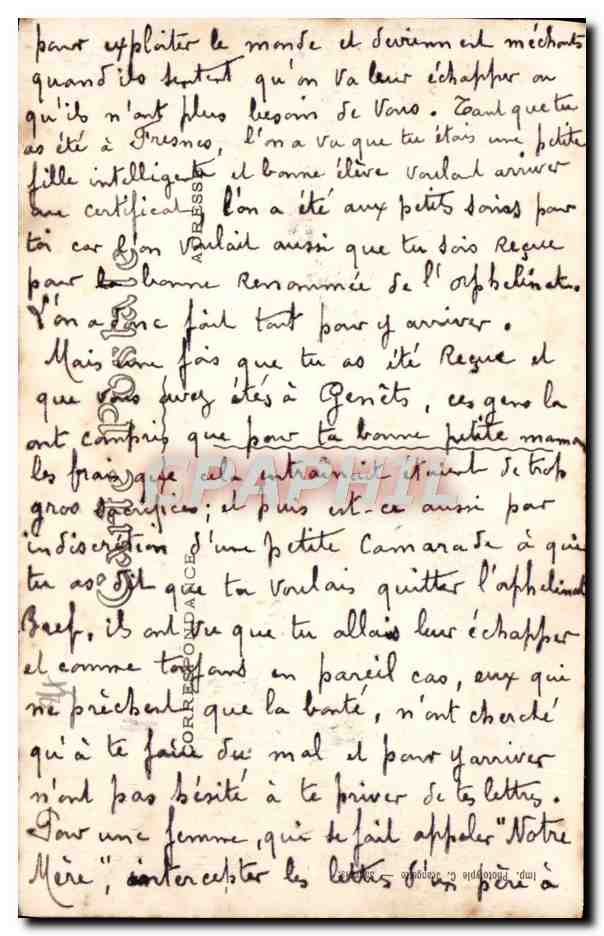 pour exploiter le monde et deviennent méchants
quand ils sentent qu'on va leur échapper ou
qu'ils n'ont plus besoin de vous. Tant que tu
as été à Fresnes, l'on a vu que tu étais une petite
fille intelligente et bonne élève voulant arriver
au certificat, l'on a été aux petits soins pour
toi car l'on voulait aussi que tu sois Reçue
pour la bonne Renommée de l'orphelinat.
L'on a donc fait tout pour y arriver.
Mais une fois que tu as été Reçue et
que vous avez étés à Genêts, ces gens la
ont compris que pour ta bonne petite maman
les frais que cela entraînait étaient de trop
gros sacrifices; et puis est-ce aussi par
indiscrétion d'une petite Camarade à qui
tu as dit que tu voulais quitter l'orphelinat
Bref, ils ont vu que tu allais leur échapper
et comme toujours en pareil cas, eux qui
ne prêchent que la bonté, n'ont cherché
qu'à te faire du mal et pour y arriver
n'ont pas hésité à te priver de tes lettres.
Pour une femme, qui se fait appeler "Notre
Mère", intercepter les lettres d'un père à
Carte Postale
ADRESSE
CORRESPONDANCE
Imp. Phototypie
CPAPHIL